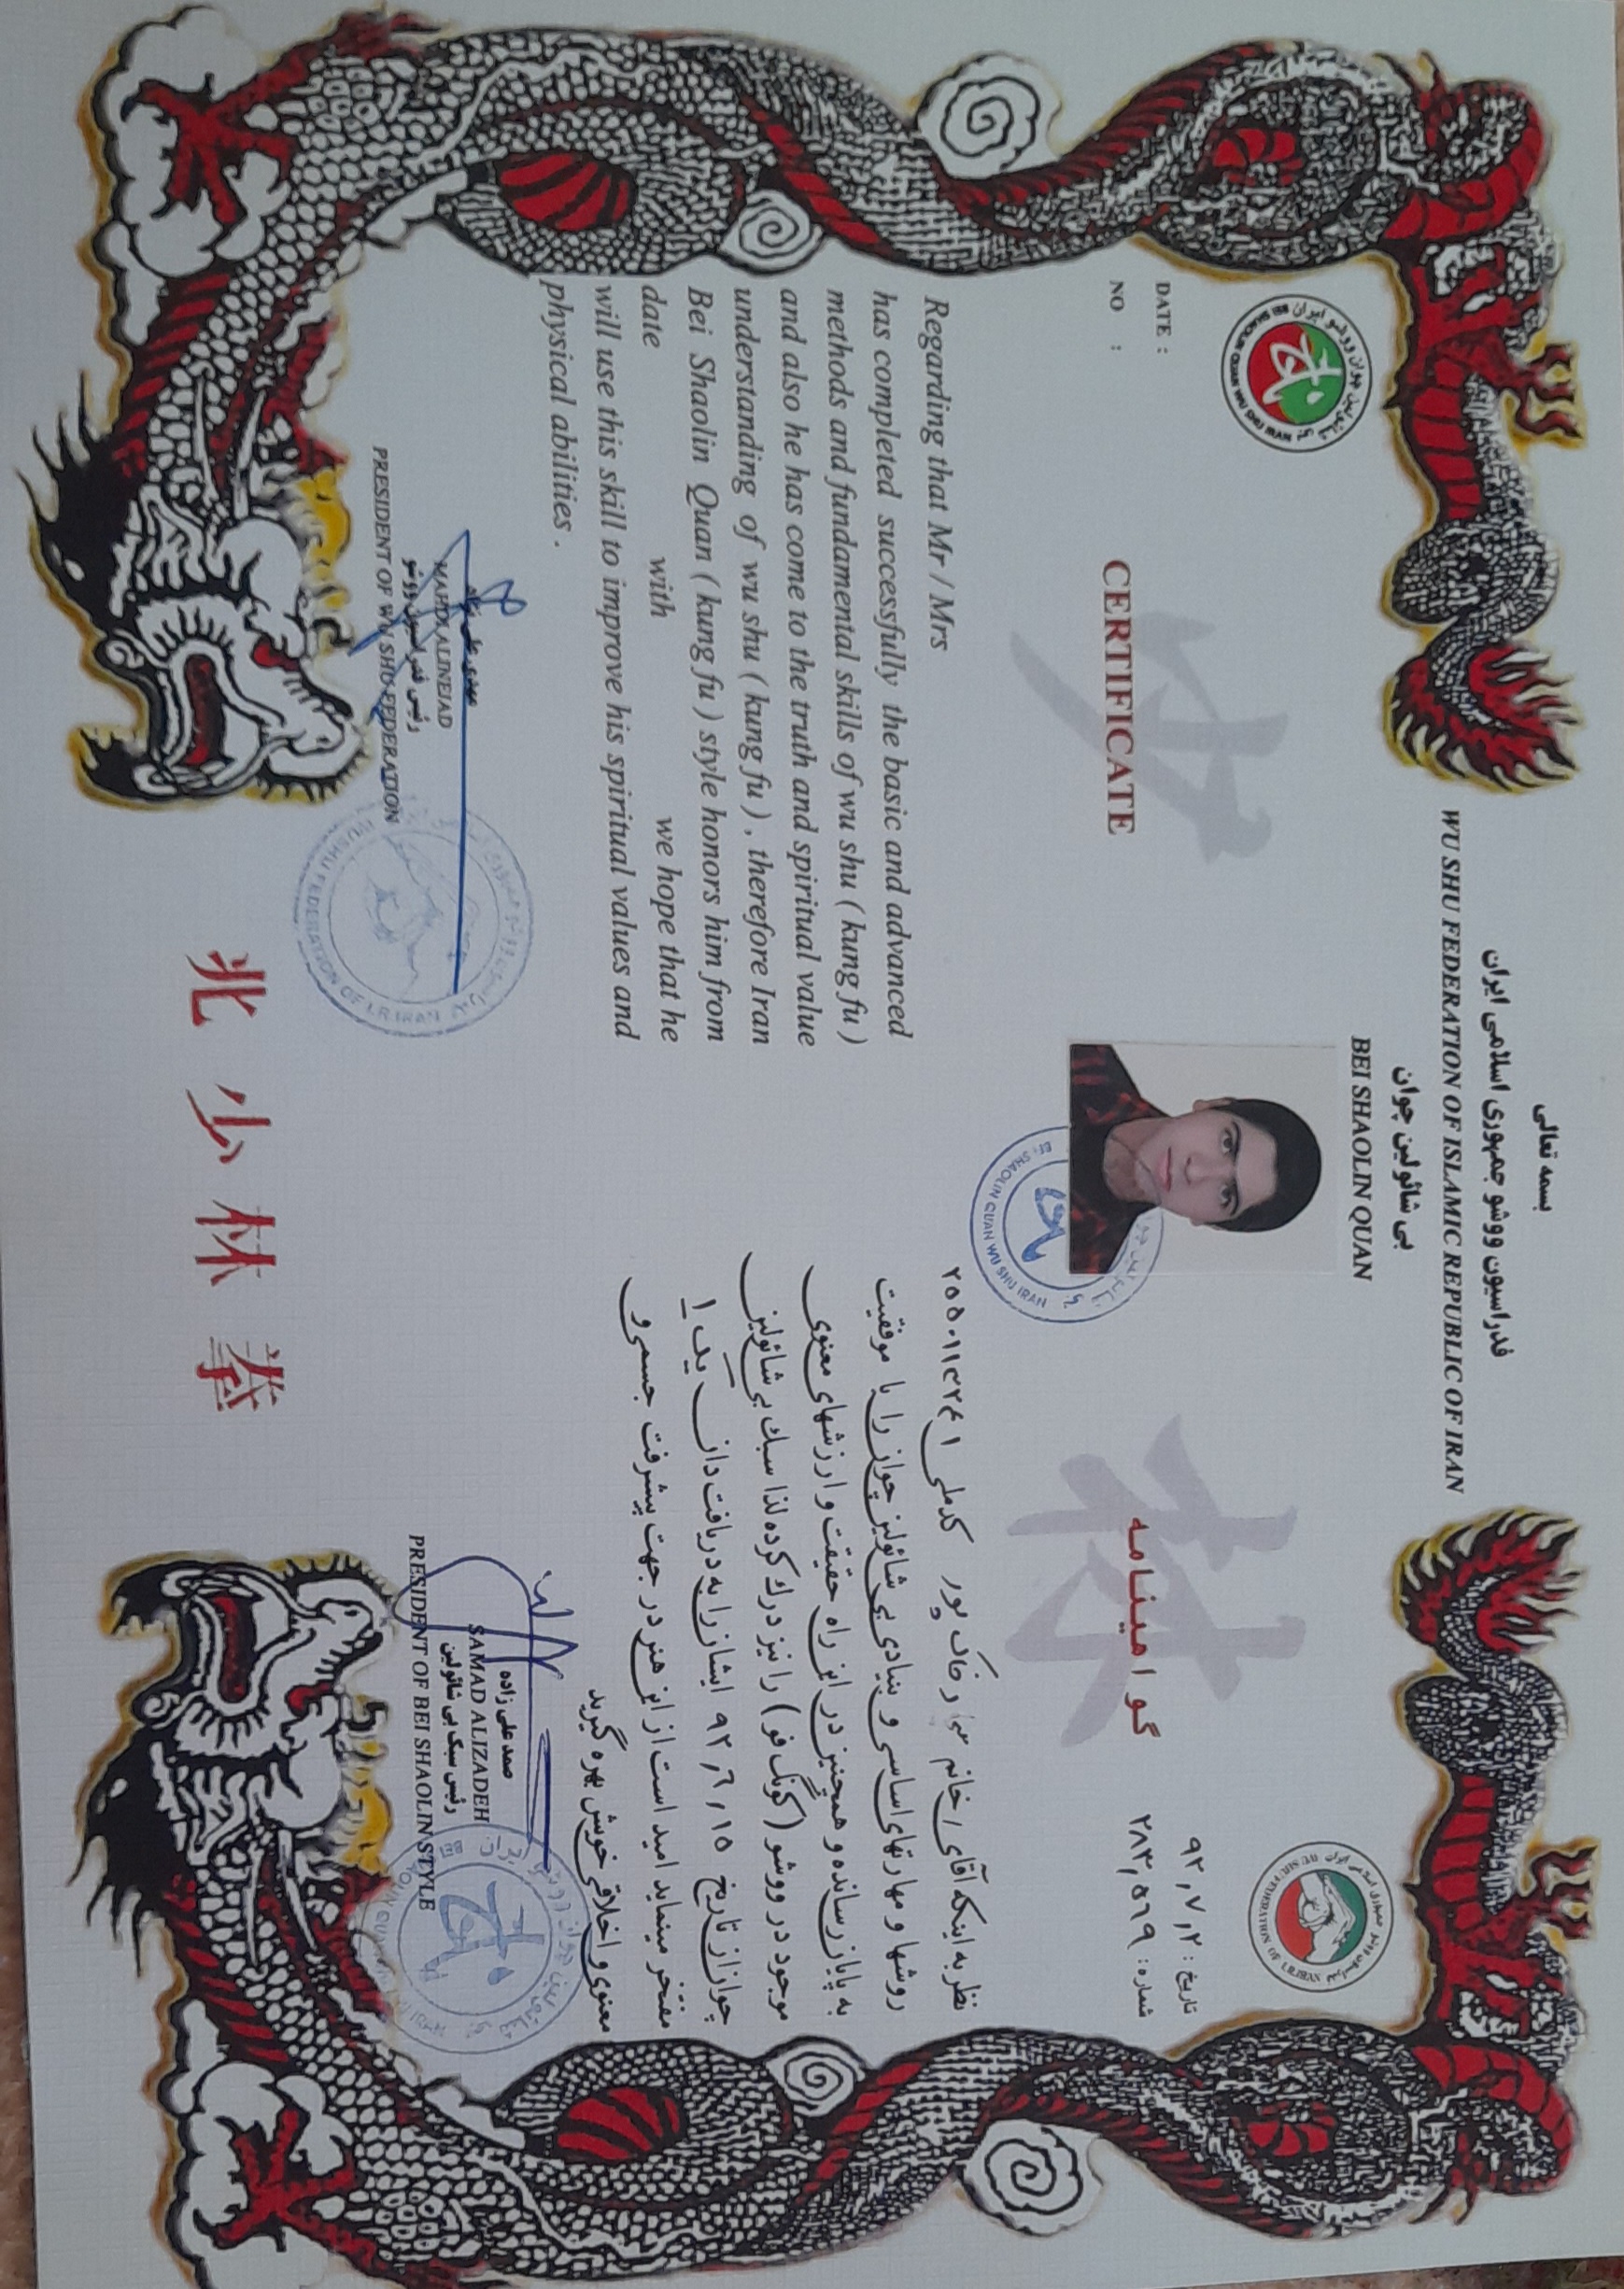 بسمه تعالی
فدراسیون ووشو جمهوری اسلامی ایران
WU SHU FEDERATION OF ISLAMIC REPUBLIC OF IRAN
بی شائولین چوان
BEI SHAOLIN QUAN
DATE :
NO :
CERTIFICATE
Regarding that Mr / Mrs
has completed successfully the basic and advanced
methods and fundamental skills of wu shu ( kung fu )
and also he has come to the truth and spiritual value
understanding of wu shu ( kung fu ) , therefore Iran
Bei Shaolin Quan ( kung fu ) style honors him from
date with we hope that he
will use this skill to improve his spiritual values and
physical abilities .
مهدی علی نژاد
MAHDI ALINEJAD
رئیس فدراسیون ووشو
PRESIDENT OF WU SHU FEDERATION
WUSHU FEDERATION OF I.R IRAN
تاریخ: ۹۲٫۷٫۲
شماره: ۲۸۳٫۵۶۹
گواهینامه
نظر به اینکه آقای / خانم خاک پور کدملی
روشها و مهارتهای اساسی و بنیادی بی شائولین چوان را با موفقیت
به پایان رسانده و همچنین در این راه حقیقت و ارزشهای معنوی
موجود در ووشو (کونگ فو) را نیز درک کرده لذا سبک بی شائولین
چوان از تاریخ ۹۲٫۶٫۱۵ ایشان را به دریافت دان یک ۱
مفتخر مینماید امید است از این هنر در جهت پیشرفت جسمی و
معنوی و اخلاقی خویش بهره گیرید
صمد علی زاده
SAMAD ALIZADEH
رئیس سبک بی شائولین
PRESIDENT OF BEI SHAOLIN STYLE
BEI SHAOLIN QUAN WU SHU IRAN
北少林拳